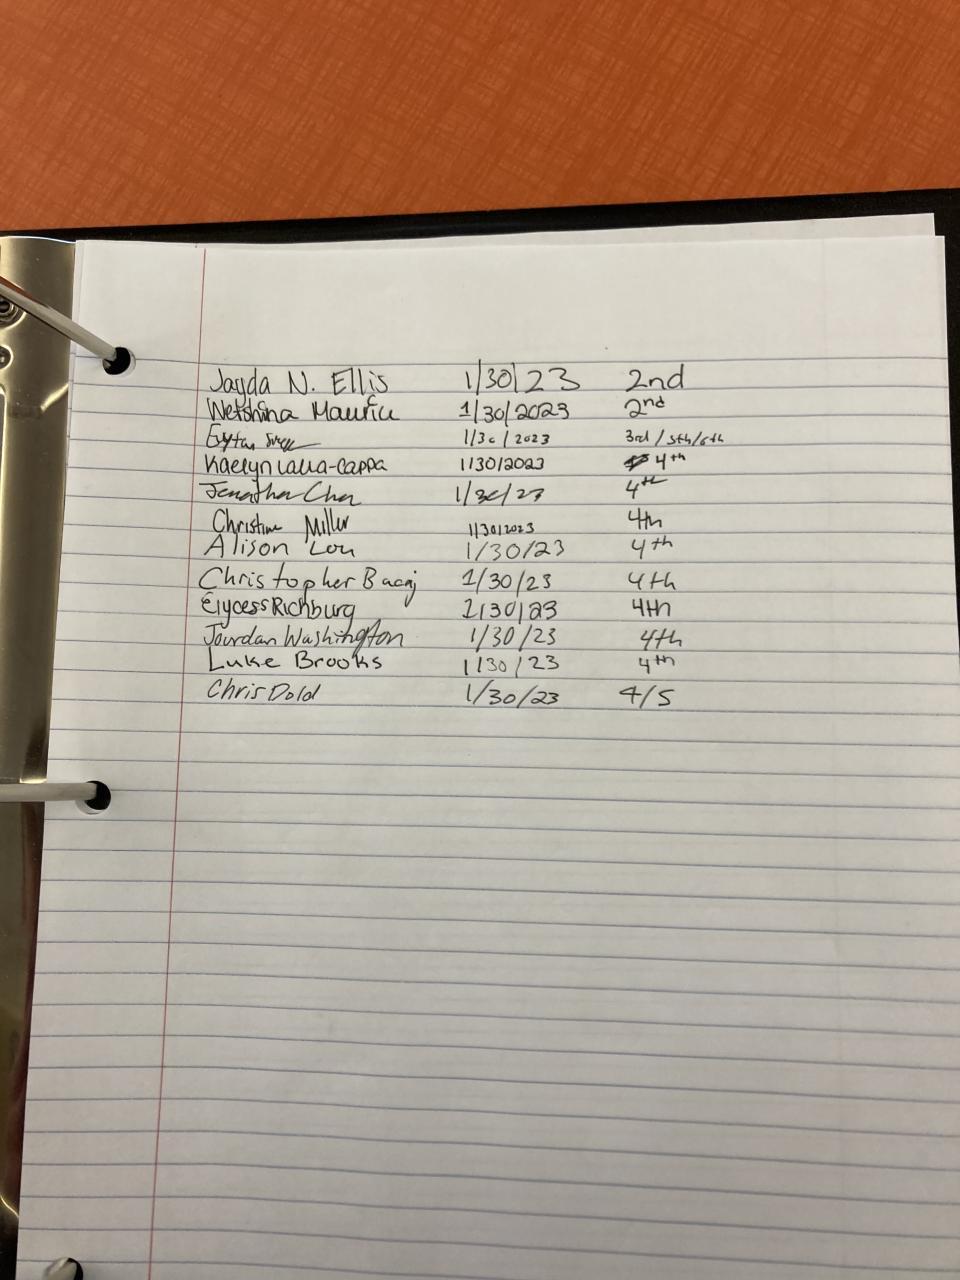 Jayda N. Ellis 1/30/23 2nd
Wetshina Maurice 1/30/2023 2nd
1/30/2023 3rd/5th/6th
Kaelyn 1/30/2023 4th
Jonathan Chen 1/30/23 4th
Christine Miller 1/30/2023 4th
Alison Lou 1/30/23 4th
Christopher Bacaj 1/30/23 4th
Elycess Richburg 1/30/23 4th
Jourdan Washington 1/30/23 4th
Luke Brooks 1/30/23 4th
Chris Dold 1/30/23 4/5